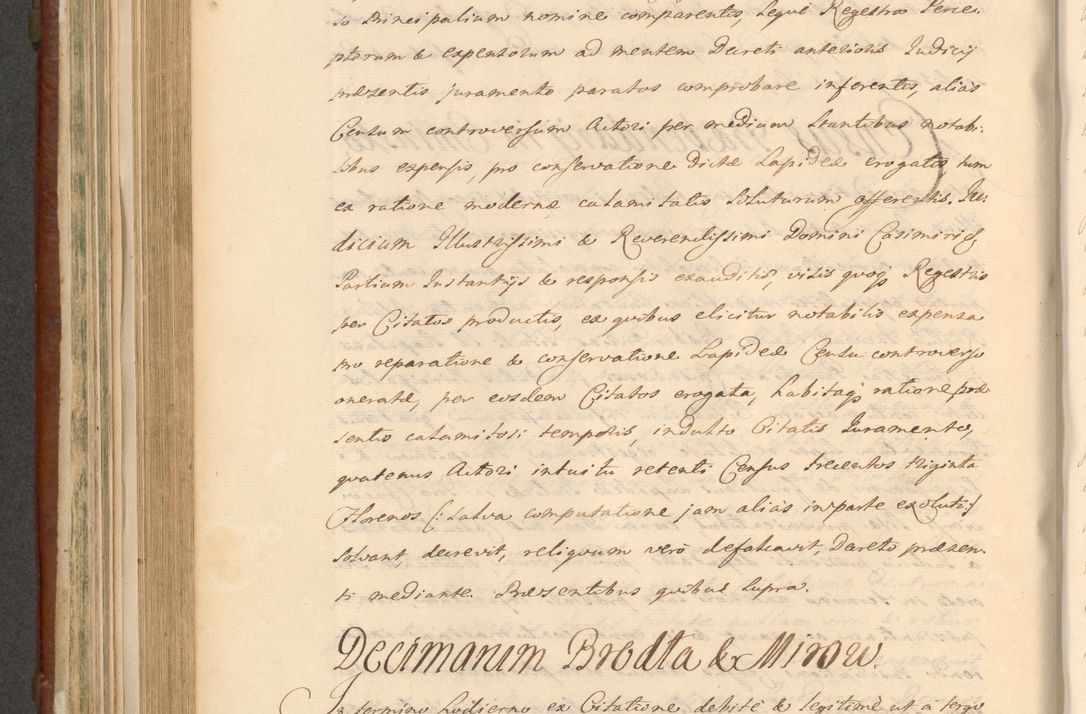 so Principalium nomine comparentis, Seque Regestra Perce-
ptorum & expensorum ad mentem Decreti anterioris Iudicij
præsentis juramento paratos comprobare inferentis, alias
Censum controversum Actori per medium Stantibus notabi-
libus expensis, pro conservatione dictæ Lapideæ erogatis tum
ea ratione modernæ calamitatis Soluturum offerentis. Iu-
dicium Illustrissimi & Reverendissimi Domini Casimiri &c,
Partium Instantijs & responsis exauditis, visis quoq; Regestris
per Citatos productis, ex quibus elicitur notabilis expensa
pro reparatione & conservatione Lapideæ Censu controverso
oneratæ, per eosdem Citatos erogata, habitaq; ratione præ
sentis calamitosi temporis, indulto Citatis Iuramento,
quatenus Actori intuitu retenti Census trecentos triginta
Florenos (: salva computatione jam alias in parte exoluti :)
solvant, decrevit, reliquum verò defalcavit, Decreto præsen-
ti mediante. Præsentibus quibus Supra.
Decimarum Brodla & Mirow.
In termino hodierno ex Citatione debitè & legitimè ut à tergo